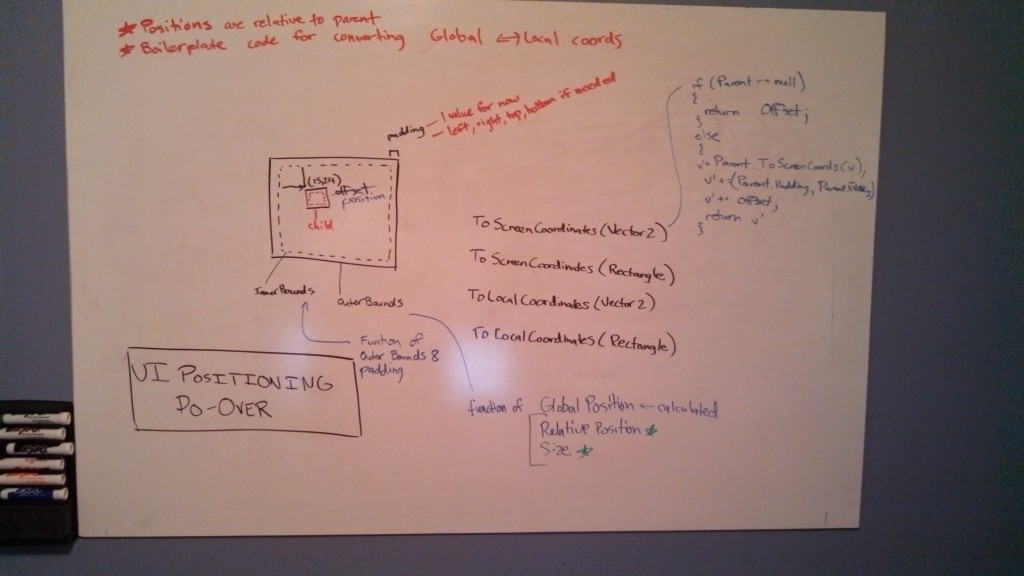 ★ Positions are relative to parent
★ Boilerplate code for converting Global ⟺ Local coords
padding
– 1 value for now
– left, right, top, bottom if needed
offset
position
child
Inner Bounds
Outer Bounds
Funtion of
Outer Bounds &
padding
UI POSITIONING
DO-OVER
To Screen Coordinates (Vector2)
To Screen Coordinates (Rectangle)
To Local Coordinates (Vector2)
To Local Coordinates (Rectangle)
if (Parent == null)
{
return Offset;
}
else
{
v' = Parent.ToScreenCoords(v);
v' += (Parent.Padding, Parent.Padding)
v' += Offset;
return v'
}
function of Global Position ← calculated
Relative Position ★
Size ★